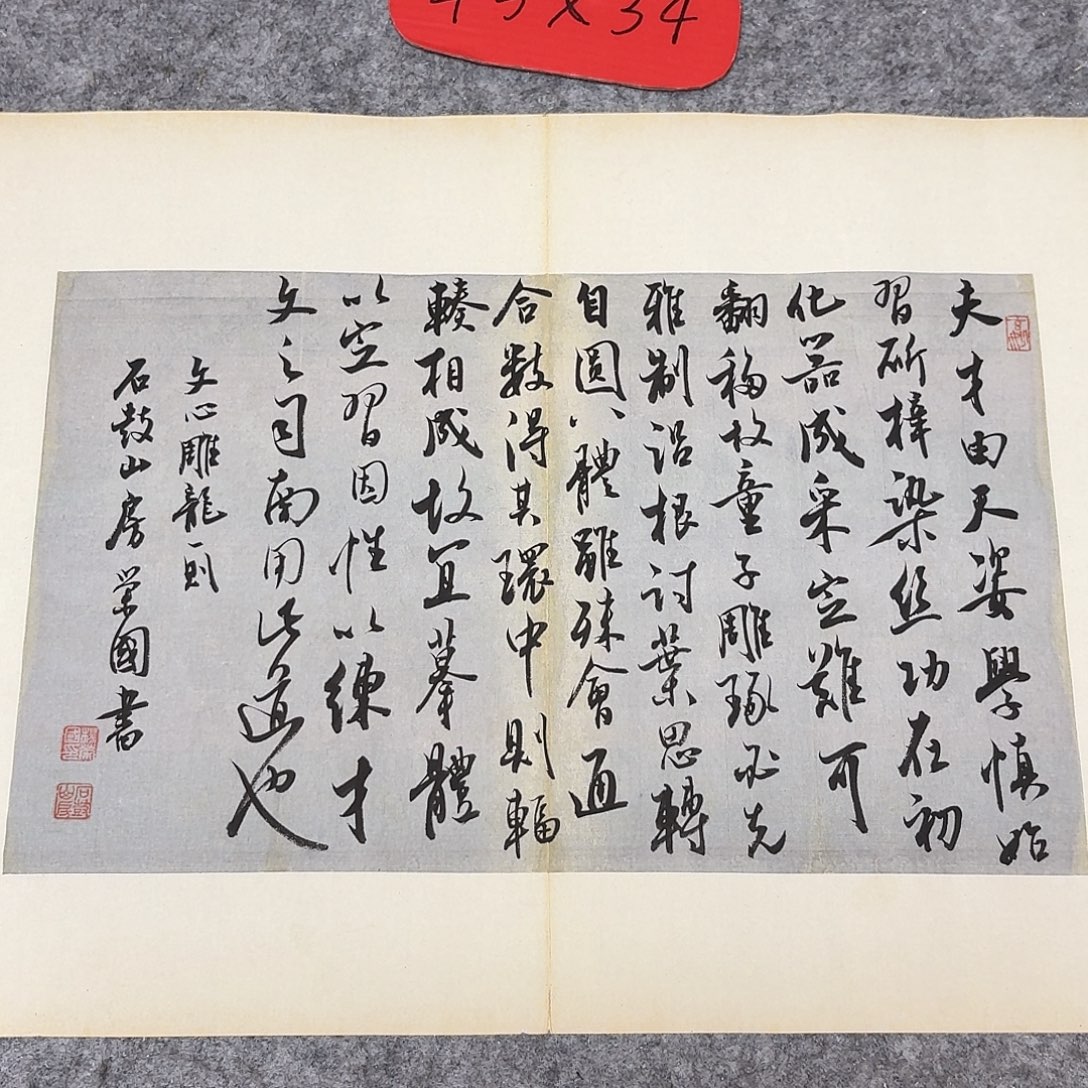 夫才由天姿學慎始
習斫梓染絲功在初
化器成采定難可
翻移故童子雕琢必先
雅制沿根討葉思轉
自圓八體雖殊會通
合數得其環中則輻
輳相成故宜摹體
以定習因性以練才
文之司南用此道也
文心雕龍一則
石鼓山房 榮國書